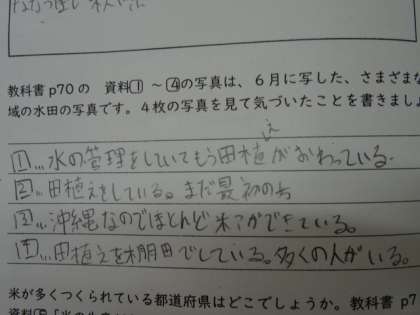 教科書p70の 資料1 ~4の写真は、6月に写した、さまざまな
域の水田の写真です。4枚の写真を見て気づいたことを書きましょ
1…水の管理をしていてもう田植えがおわっている。
2…田植えをしている。まだ最初の方
3…沖縄なのでほとんど米ができている。
4…田植えを棚田でしている。多くの人がいる。
米が多くつくられている都道府県はどこでしょうか。教科書p7